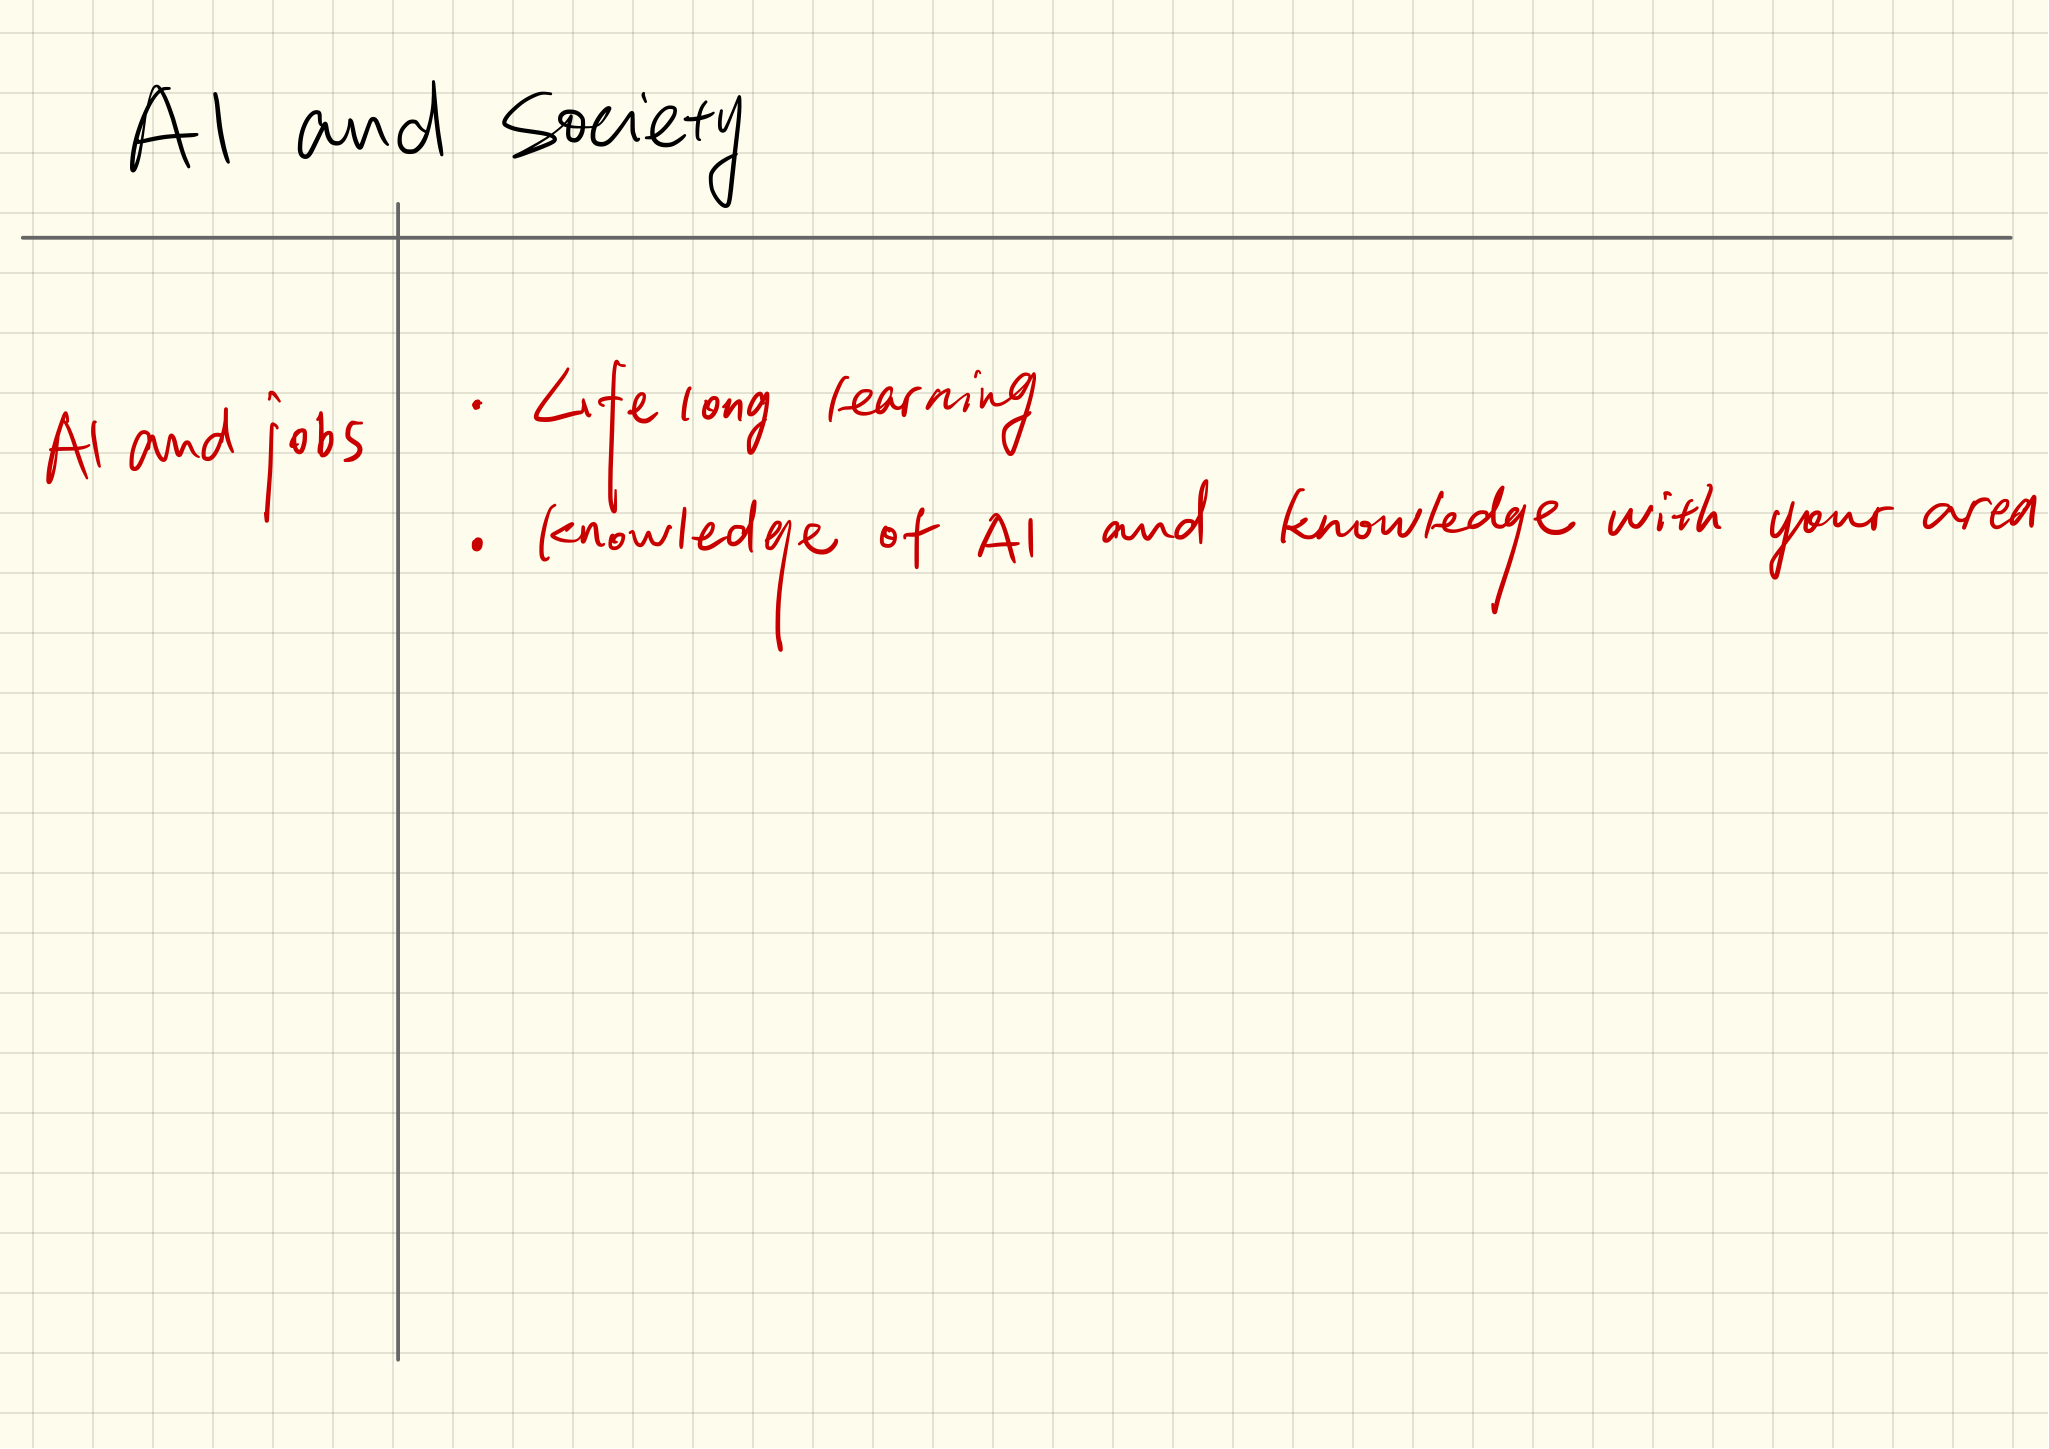 AI and Society
AI and jobs
• Life long learning
• knowledge of AI and knowledge with your area